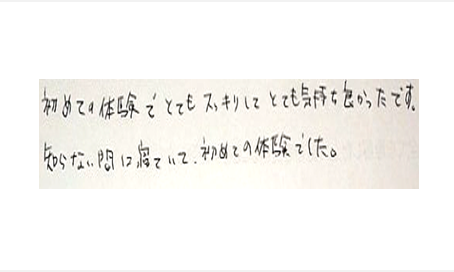 初めての体験でとてもスッキリしてとても気持ち良かったです。
知らない間に寝ていて、初めての体験でした。